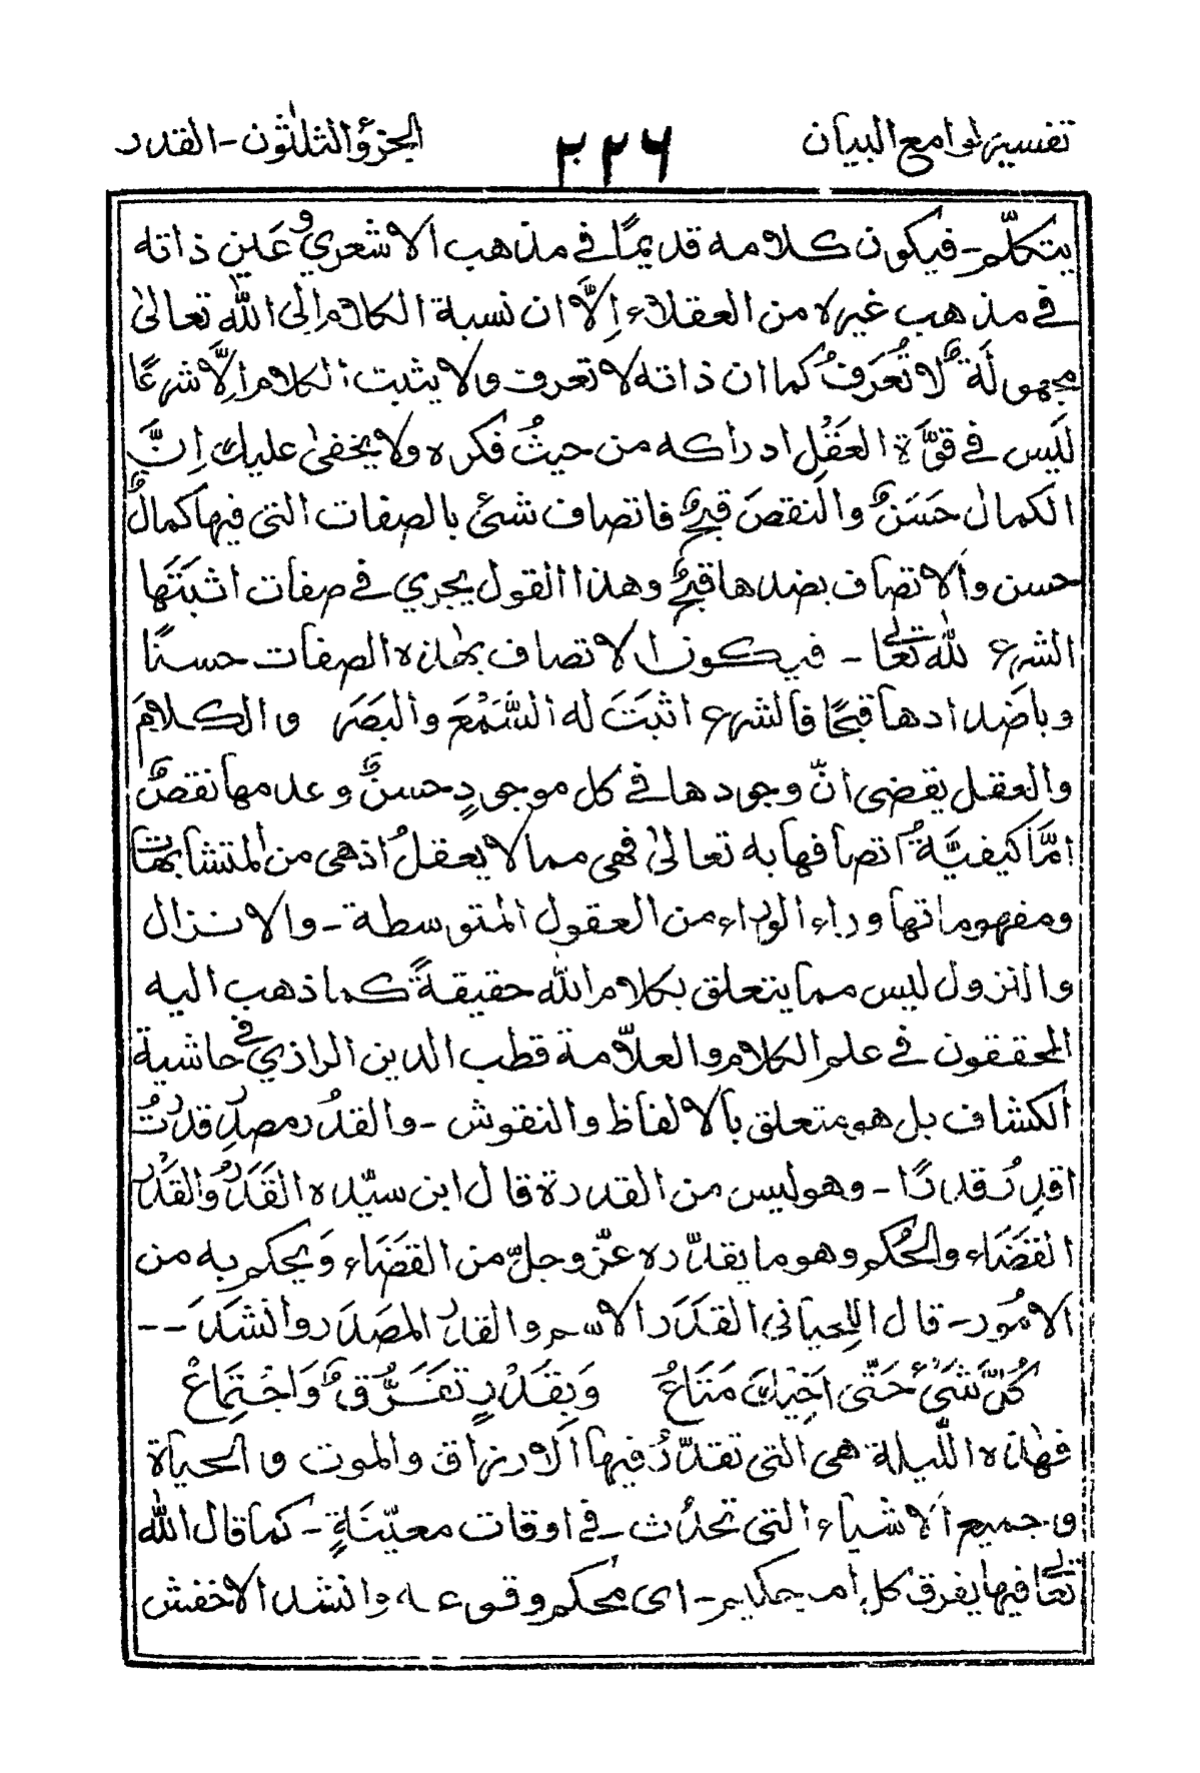 تفسير لوامع البيان ٢٢٦ الجزؤ الثلثون - القدر
يتكلّم - فيكون كلامه قديمًا في مذهب الاشعريّ و عَين ذاته
في مذهب غيره من العقلاء اِلاَّ ان نسبة الكلام اِلى الله تعالىٰ
مجهولَة ٌ لا تُعرَفُ كما ان ذاته لا تعرف ولا يثبت الكلام اِلاَّ شرعًا
لَيس في قوَّة العَقْلِ ادراكه من حيثُ فكره ولا يخفىٰ عليك اِنَّ
الكمال حَسَنٌ والنقصَ قبحٌ فاتصاف شئ بالصفات التى فيها كمالٌ
حسن والاتصاف بضدها قبحٌ وهذا القول يجري في صفات اثبتَها
الشرع لله تعالى - فيكون الاتصاف بهٰذه الصفات حسنًا
وباضدادها قبحًا فالشرع اثبَتَ له السَّمْعَ والبَصَرَ والكلامَ
والعقل يقضى انّ وجودها في كل موجودٍ حسنٌ وعدمها نقصٌ
امَّا كيفيَّةُ اتصافها به تعالىٰ فهى مما لا يعقلُ اذهى من المتشابهات
ومفهوماتها وراء الوراء من العقول المتوسطة - والانزال
والنزول ليس مما يتعلق بكلام الله حقيقةً كما ذهب اليه
المحققون في علم الكلام والعلاّمة قطب الدين الرازي في حاشية
الكشاف بل هو متعلق بالالفاظ والنقوش - والقدْر مصدر قدرتُ
اقدِرُ قدرًا - وهوليس من القدرة قال ابن سيّده القَدَرُ والقَدْرُ
القضَاء والحُكم وهو ما يقدّره عزّ وجلّ من القضَاء وَيحكم به من
الامُور - قال اللحياني القَدَر الاسم والقدْر المصَدَر وانشدَ --
كُلّ شَىْءٍ حَتّى اَخِيكَ مَتَاعُ وَبِقَدْرٍ تَفَرُّقٌ وَاجْتِمَاعُ
فهٰذه اللّيلة هى التى تقدّرُ فيها الارزاق والموت والحياة
وجميع الاشياء التى تحدُث في اوقات معيّنَةٍ - كما قال الله
تعالى فيها يفرق كل امر حكيم - اى محكم وقوعه وانشد الاخفش